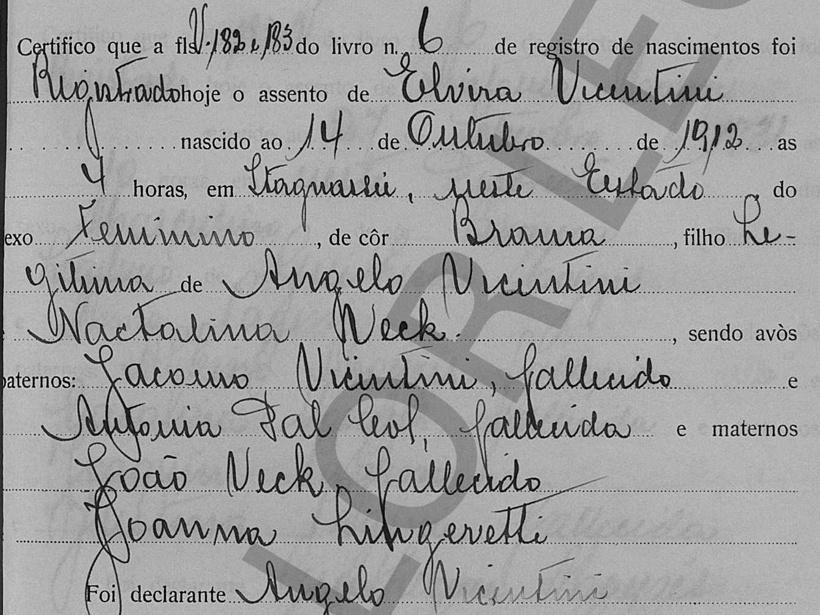 Certifico que a fls V. 182 e 183 do livro n. 6 de registro de nascimentos foi
Registrado hoje o assento de Elvira Vicentini
nascido ao 14 de Outubro de 1912 as
4 horas, em Itaguassú, neste Estado, do
exo Feminino, de côr Branca, filho Le-
gitima de Angelo Vicentini
Nactalina Neck, sendo avòs
paternos: Jacomo Vicintini, fallecido e
Antonia Dal Col, fallecida e maternos
João Neck, fallecido
Joanna Lingeretti
Foi declarante Angelo Vicintini
LOR LEG